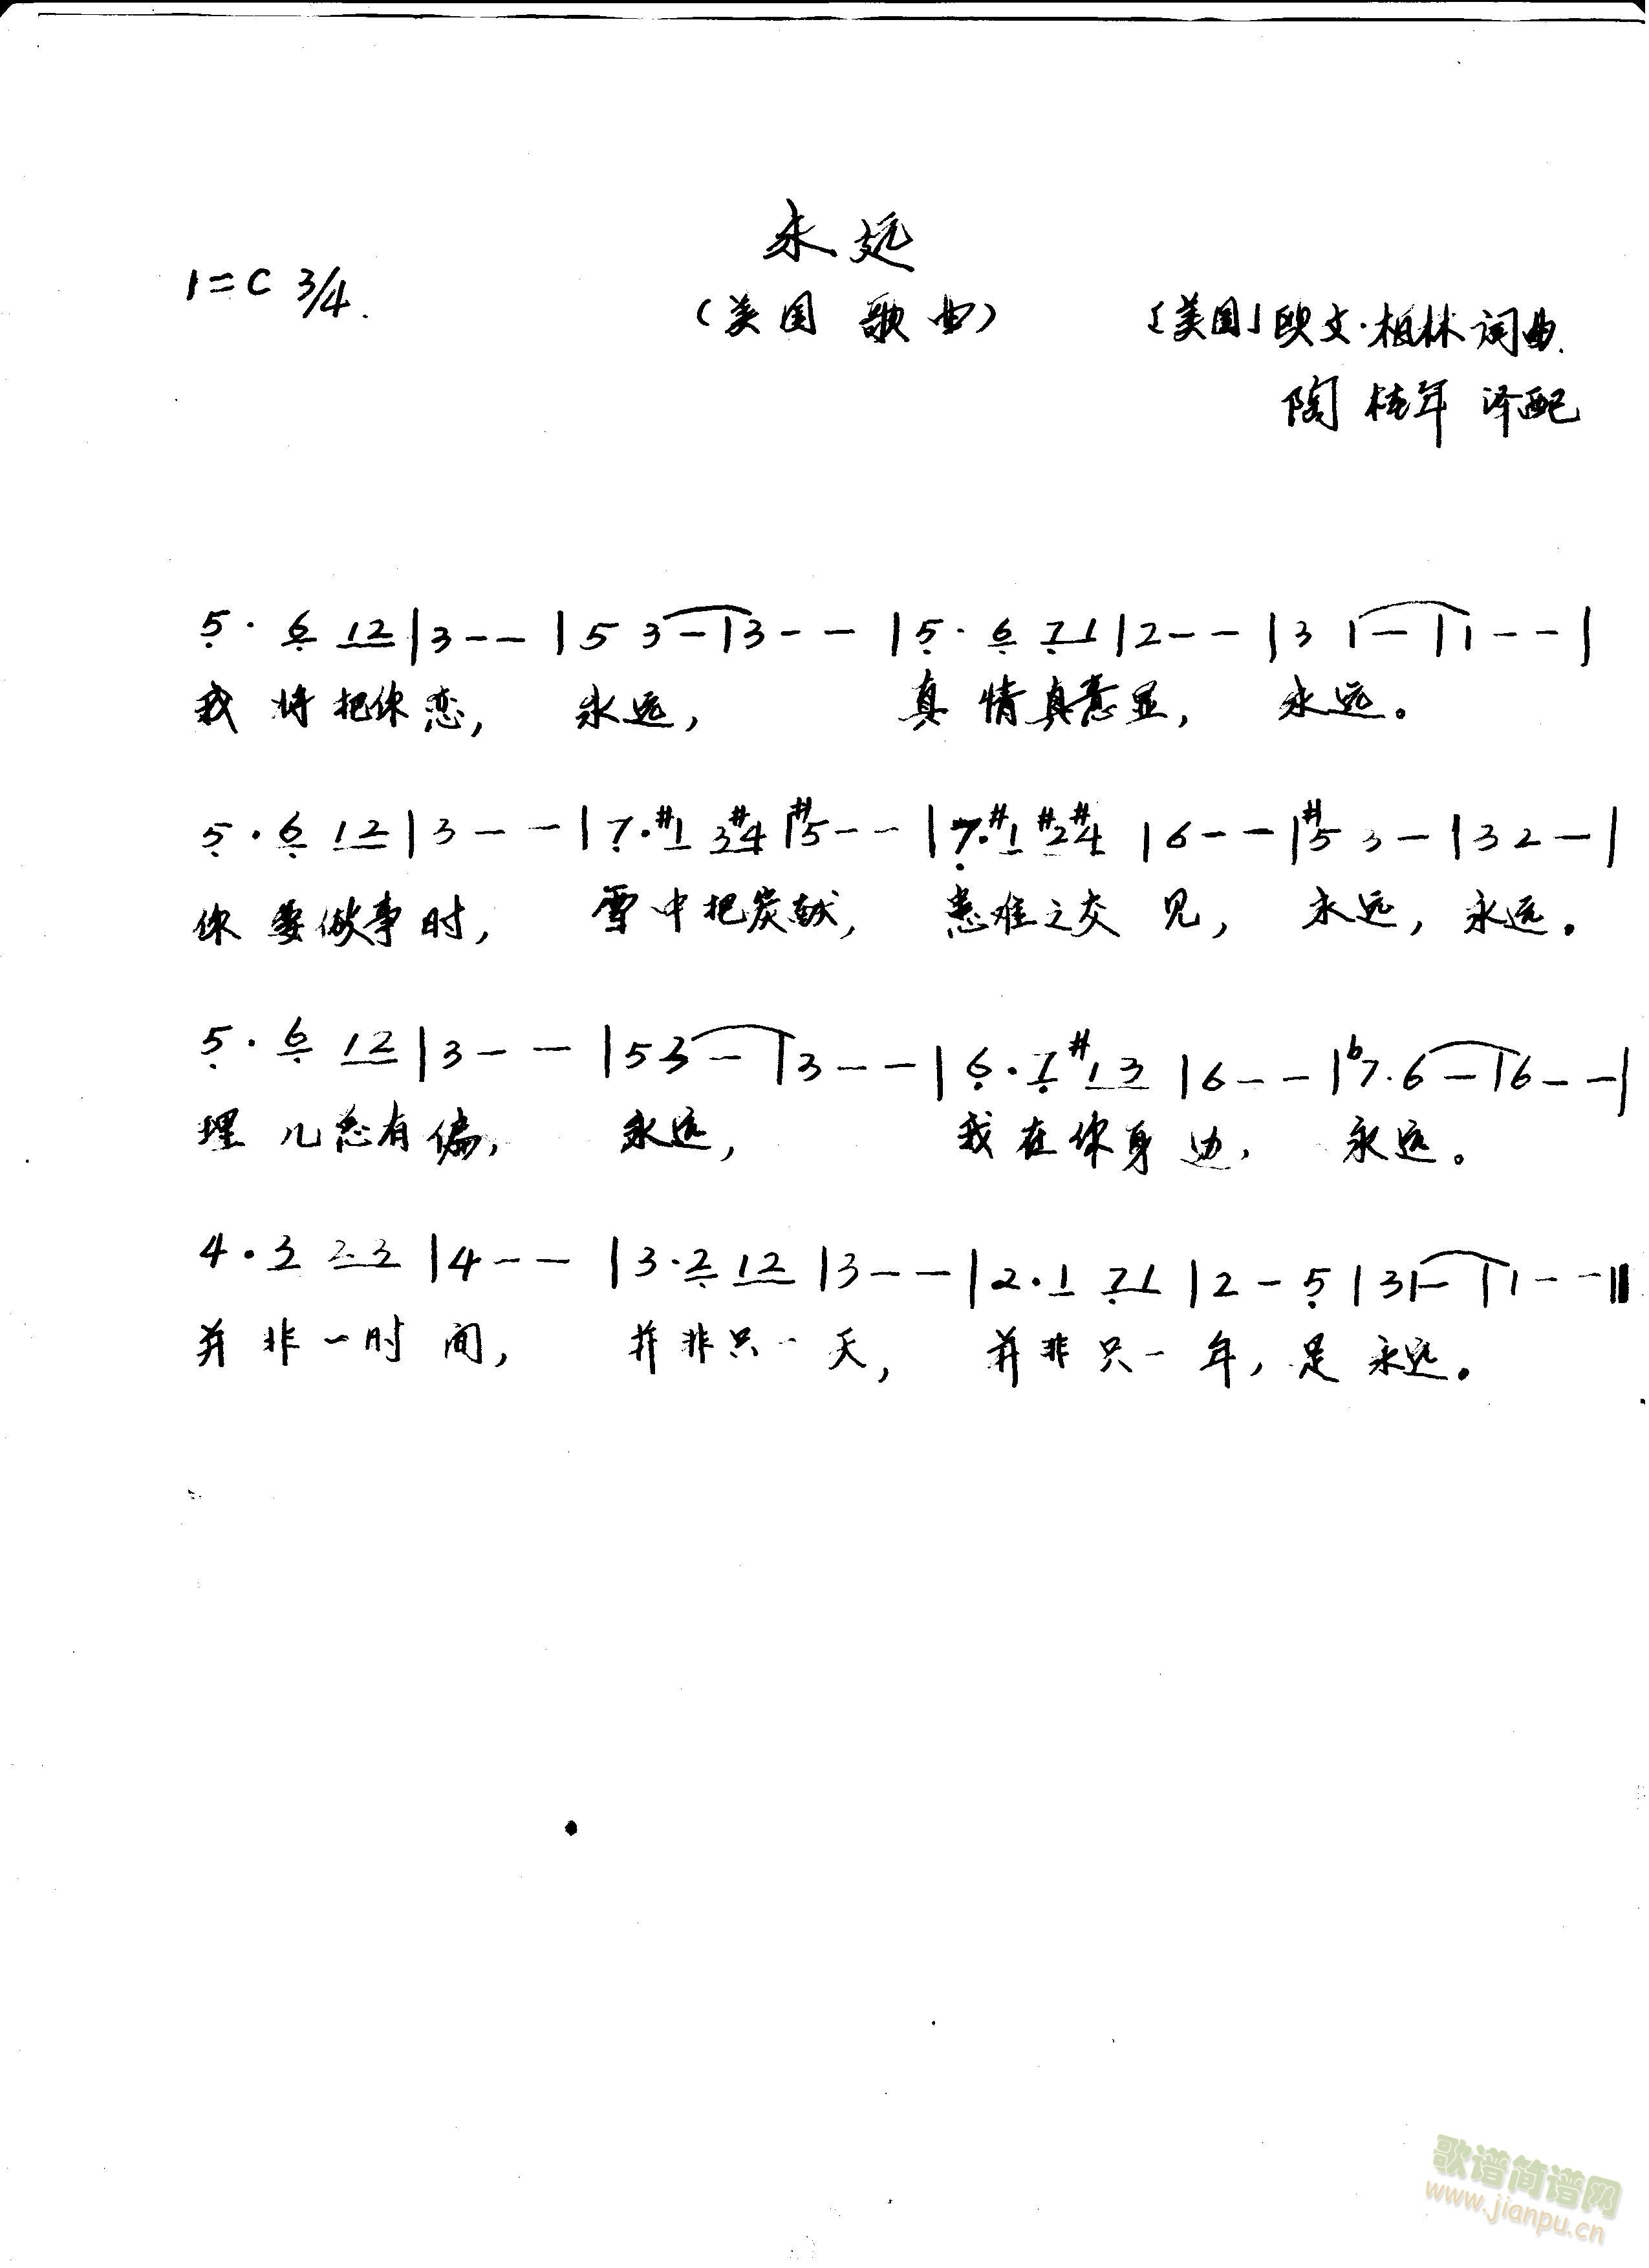 永远
1=C 3/4.
(美国 歌曲)
[美国]欧文·柏林词曲.
陶桂年 译配
5· 6 12|3--|5 3-|3--|5· 6 71|2--|3 1-|1--|
我 将把你恋, 永远, 真 情真意显, 永远。
5·6 12|3--|7·#1 3#4|#5--|7·#1 #2#4|6--|#5 3-|32-|
你要做事时, 雪中把炭献, 患难之交 见, 永远, 永远。
5·6 12|3--|53-|3--|6·7 #13|6--|b7·6-|6--|
理儿总有偏, 永远, 我在你身边, 永远。
4·3 23|4--|3·2 12|3--|2·1 71|2-5|31-|1--||
并非一时间, 并非只一天, 并非只一年, 是永远。
歌谱简谱网
www.jianpu.cn